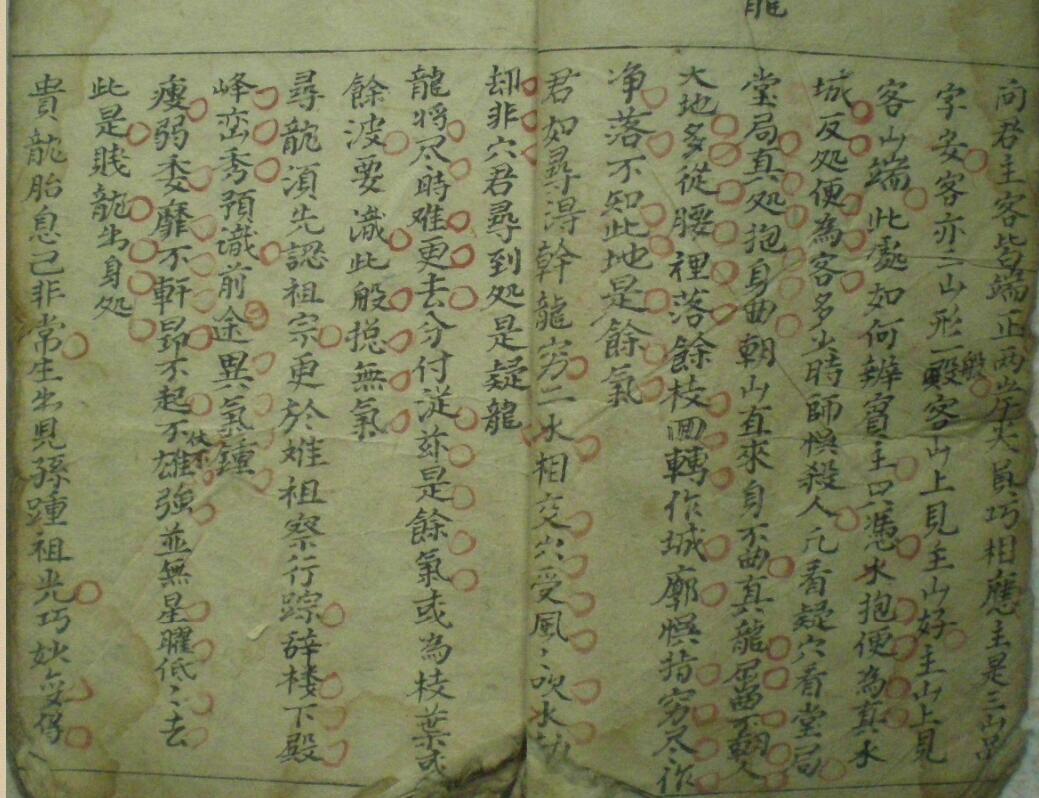 龍
向君主客皆端正两岸尖員巧相應主是三山品
字安客亦三山形一般客山上見主山好主山上見
客山端此處如何辨賓主只憑水抱便為真水
城反処便為客多少時師悮殺人凢看疑穴看堂局
堂局真処抱身曲朝山直來身不曲真龍屈曲不朝人
大地多從腰裡落餘枝囬轉作城廓悮指窮尽作
净落不知此地是餘氣
君如尋淂幹龍穷二水相交穴受風〻吹水劫
却非穴君尋到処是疑龍
龍将尽時难更去分付迋𧺆是餘氣或為枝葉或
餘波要識此般揔無氣
尋龍湏先認祖宗更於难祖察行踪辞楼下殿
峰巒秀預識前途異氣鍾
瘦弱委靡不軒昂不起伏不雄強並無星曜低〻去
此是賤龍出身処
貴龍胎息已非常生出児孫踵祖光巧妙